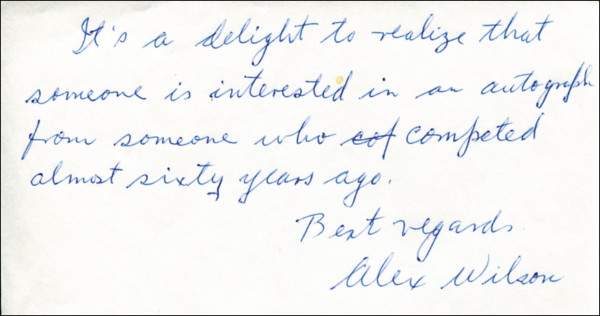 It's a delight to realize that
someone is interested in an autograph
from someone who cof competed
almost sixty years ago.
Best regards.
Alex Wilson